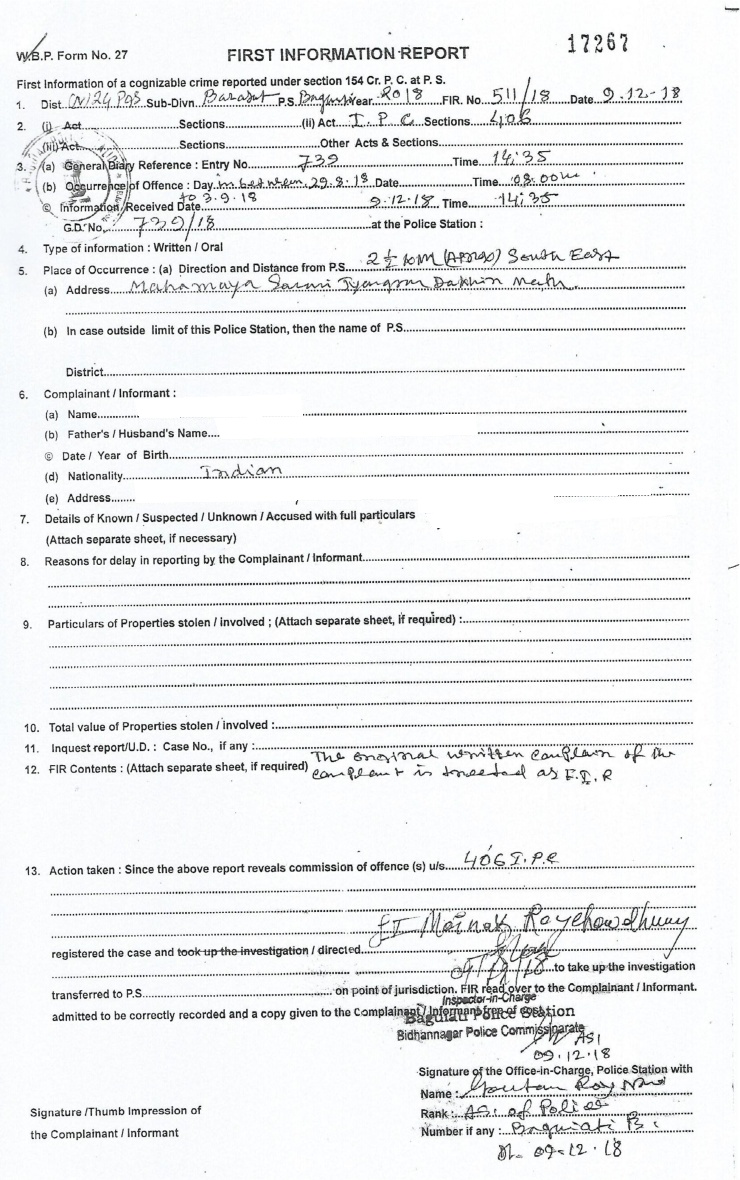 17267
W.B.P. Form No. 27 FIRST INFORMATION REPORT
First Information of a cognizable crime reported under section 154 Cr. P. C. at P. S.
1. Dist. (N) 24 PGS Sub-Divn. Barasat P.S. Year 2018 FIR. No. 511/18 Date 9.12-18
2. (i) Act Sections (ii) Act I.P.C Sections 406
(iii) Act Sections Other Acts & Sections
3. (a) General Diary Reference : Entry No. 739 Time 14:35
(b) Occurrence of Offence : Day in between 29.8.18 Date Time 08:00
to 3.9.18
© Information Received Date 9.12.18 Time 14:35
G.D. No. 739/18 at the Police Station :
4. Type of information : Written / Oral
5. Place of Occurrence : (a) Direction and Distance from P.S. 2½ KM (Approx) South East
(a) Address Mahamaya Dakhin Math
(b) In case outside limit of this Police Station, then the name of P.S.
District
6. Complainant / Informant :
(a) Name
(b) Father's / Husband's Name
© Date / Year of Birth
(d) Nationality Indian
(e) Address
7. Details of Known / Suspected / Unknown / Accused with full particulars
(Attach separate sheet, if necessary)
8. Reasons for delay in reporting by the Complainant / Informant
9. Particulars of Properties stolen / involved ; (Attach separate sheet, if required) :
10. Total value of Properties stolen / involved :
11. Inquest report/U.D. : Case No., if any :
12. FIR Contents : (Attach separate sheet, if required) The original written complain of the
complant is treated as F.I.R
13. Action taken : Since the above report reveals commission of offence (s) u/s. 406 I.P.C
SI Mainak Roychowdhury
registered the case and took up the investigation / directed
09/12/18 to take up the investigation
transferred to P.S. on point of jurisdiction. FIR read over to the Complainant / Informant.
Inspector-in-Charge
admitted to be correctly recorded and a copy given to the Complainant / Informant free of cost
Baguiati Police Station
Bidhannagar Police Commissionarate
ASI
09.12.18
Signature of the Office-in-Charge, Police Station with
Name : Goutam Roy
Rank : ASI of Police
Signature /Thumb Impression of
the Complainant / Informant
Number if any : Baguiati P.S
09-12-18